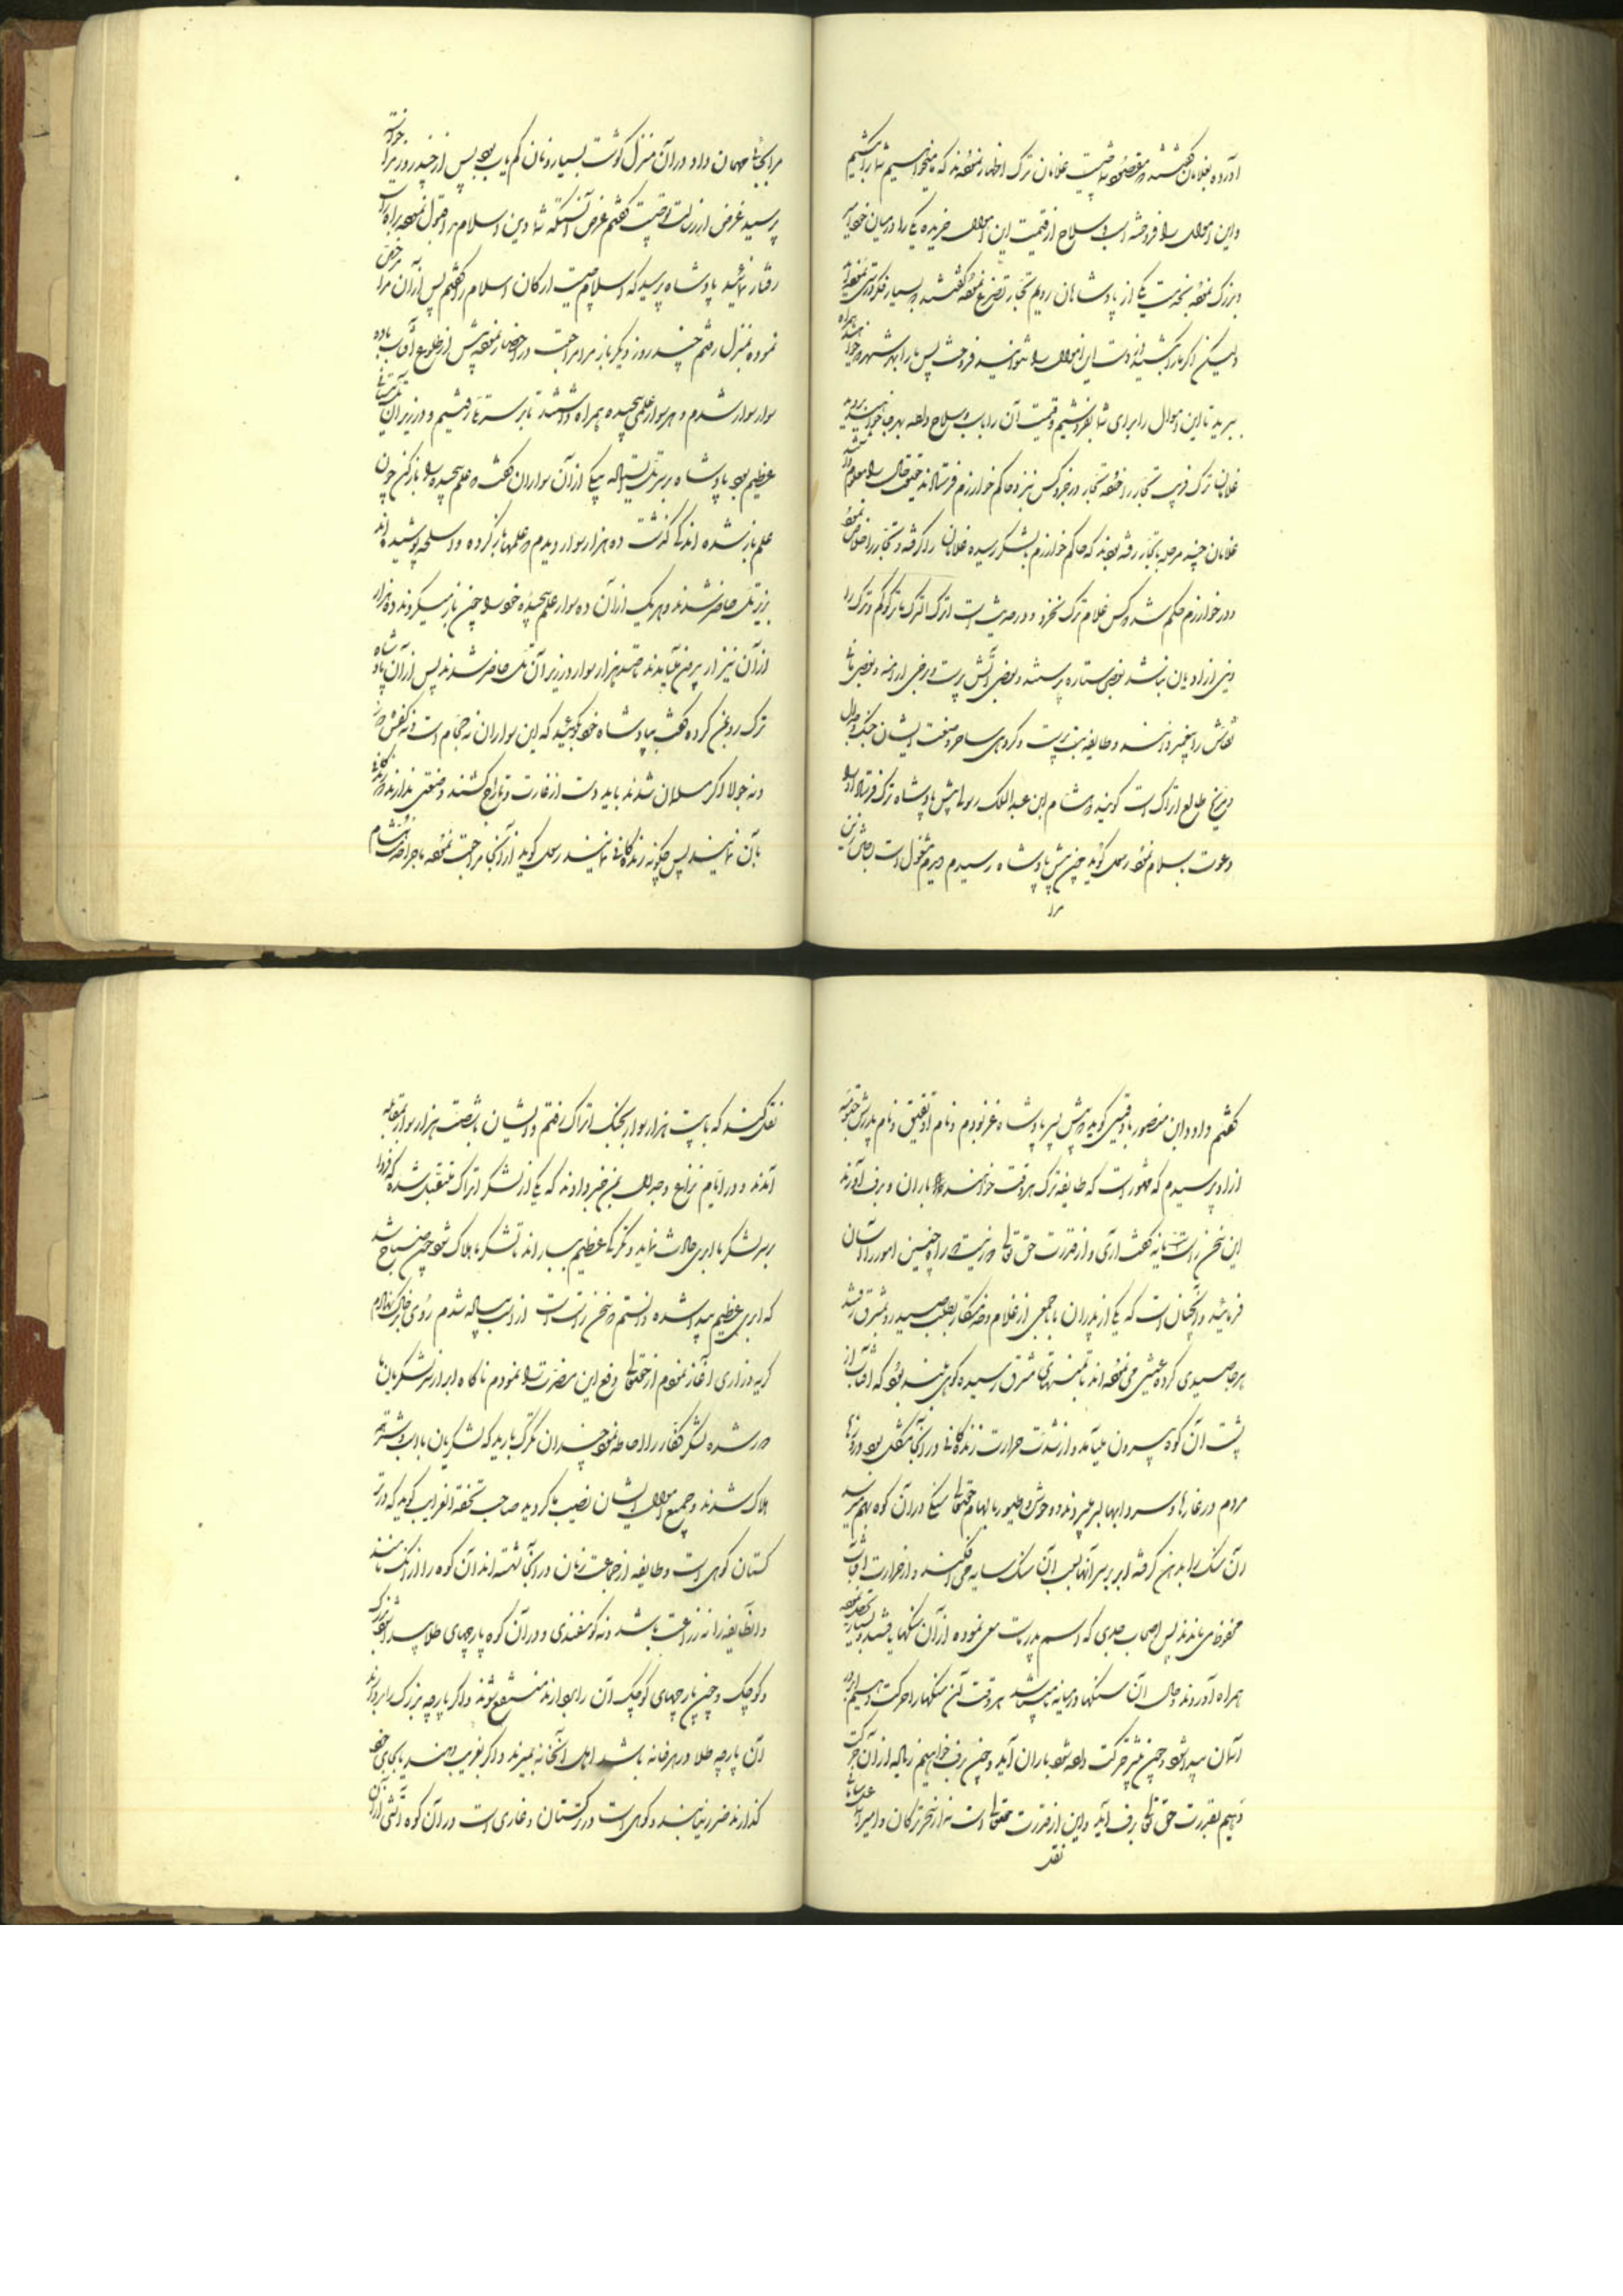 آورده بغلامان گفتند مقصود شما چیست غلامان ترک اظهار نمودند که میخواهیم شما را بکشیم
و این اموال را فروخته اسب و سلاح از قیمت این اموال خریده یکی را در میان خود
و بزرگ نموده بخدمت یکی از پادشاهان رویم تجار تضرع نموده گفتند بسیار فکر
ولیکن اگر ما را بکشید این اموال را نتوانید فروخت پس ما را بهر شهر
ببرید تا این اموال را برای شما بفروشیم و قیمت آن را اسب و سلاح داده بهر جا خواهید بروید
غلامان ترک فریب تجار را خورده تجار در خفیه کس نزد حاکم خوارزم فرستادند حقیقت حال را
غلامان چند مرحله با تجار رفته بودند که حاکم خوارزم با لشکر رسیده غلامان را گرفته و تجار را خلاص نمود
و در خوارزم حکم شد کس غلام ترک نخرد و در حدیث است اترک الترک ما ترکوکم و ترک را
دینی از ادیان نباشد بعضی ستاره پرستند و بعضی آتش پرست و برخی ارامنه و بعضی
نقاش را پیغمبر دانند و طایفه بت پرست و گروهی ساحر و صنعت ایشان جنگ و جدال
و مریخ طالع اتراک است گویند هشام ابن عبدالملک رسولی پیش پادشاه ترک فرستاد او را
دعوت باسلام نمود رسول گوید چون پیش پادشاه رسیدم دیدم مشغول است
مرا
مرا بجائی مهمان داد در آن منزل گوشت بسیار و نان کم یاب بود پس از چند روز مرا خواسته
پرسید غرض از رسالت تو چیست گفتم غرض آنستکه شما دین اسلام را قبول نموده براه راست
رفتار نمائید پادشاه پرسید که اسلام چیست ارکان اسلام را گفتم پس از آن مرا مرخص
نموده بمنزل رفتم چند روز دیگر باز مرا احضار نموده پیش از طلوع آفتاب با ده
سوار سوار شدم و هر سوار علمی پیچیده همراه داشتند تا بر سر تلی رفتیم و در زیر آن تل
عظیم بود پادشاه بر سر تل ایستاد بیکی از آن سواران گفت علم پیچیده را باز کن چون
علم باز شد اندکی گذشت ده هزار سوار دیدم علمها باز کرده و اسلحه پوشیده اند
بزیر تل حاضر شدند و هر یک از آن ده سوار علم پیچیده خود را چون باز میکردند ده هزار
از آن نیز بیرون میآمدند تا صد هزار سوار در زیر آن تل حاضر شدند پس از آن پادشاه
ترک رو بمن کرده گفت بپادشاه خود بگوئید که این سواران نه حجام است و نه کفش دوز
و نه جولا اگر مسلمان شدند باید دست از غارت و تاراج کشند و صنعتی ندارند که زندگانی
بآن نمایند پس چگونه زندگانی نمایند رسول گوید از آنجا مراجعت نموده ماجرا بعرض هشام
گفتم داود ابن منصور بادقیسی گوید پیش پسر پادشاه غز بودم و نام او تغلیق و نام پدرش
از او پرسیدم که مشهور است که طایفه ترک هر وقت خواهند باران و برف آورند
این سخن راست یا نه گفت آری و از قدرت حق تعالی دور نیست که چنین امور را آسان
فرماید و آنچنان است که یکی از پدران ما با جمعی از غلام و خدمتکار بطلب صید رو بمشرق رفتند
هر جا صیدی کرده عیشی می نموده اند تا بمنتهای مشرق رسیده کوهی بلند بود که آفتاب از
پشت آن کوه بیرون میآمد و از شدت حرارت زندگانی در آنجا مشکل بود و روزها
مردم در غارها و سردابها بسر میبردند و وحوش و طیور را بالهام حقتعالی سنگی در آن کوه بهم میرسد
آن سنگ را بدهن گرفته ابر بر سر آنها بسبب آن سنگ سایه می افکند و از حرارت آفتاب
محفوظ می ماندند پس اصحاب جدی که اسم پدر ماست سعی نموده از آن سنگها یافتند و بسیار
همراه آوردند و حال آن سنگها در میانه ما میباشد هر وقت آن سنگها را حرکت دهیم ابر
آسمان پیدا شود و چون بیشتر حرکت داده شود باران آید و چون برف خواهیم زیاده از آن حرکت
دهیم بقدرت حق تعالی برف آید و این از قدرت حقتعالی است نه از سحر ترکان و امیر
نقل
نقل کند که با بیست هزار سوار بجنگ اتراک رفتم و ایشان با شصت هزار سوار بمقابله
آمدند و در ایام نزاع و جدال بمن خبر دادند که یکی از لشکر اتراک متقبل شده که فردا
بر سر لشکر ما ابری حادث نماید و تگرگ عظیم بباراند تا لشکر ما هلاک شود چون صباح شد
که ابری عظیم پیدا شده دانستم سخن راست است از اسب پیاده شدم روی بر خاک نهادم
گریه و زاری آغاز نمودم از حقتعالی رفع این مضرت را نمودم ناگاه ابر از سر لشکریان ما
دور شده لشکر کفار را احاطه نمود چندان تگرگ بارید که لشکریان با اسب و شتر
هلاک شدند و جمیع اموال ایشان نصیب ما گردید صاحب تحفة الغرایب گوید که در
کستان کوهی است و طایفه از جماعت زنان در آنجا نشسته اند آن کوه را نامند
و آنطایفه را نه زراعت باشد و نه گوسفندی و در آن کوه پارچهای طلا پیدا شود بزرگ
و کوچک و چون پارچهای کوچک آن را بردارند منتفع شوند و اگر پارچه بزرگ را بردارند
آن پارچه طلا در هر خانه باشد اهل آنخانه بمیرند و اگر بغریب دهند یا بجای خود
گذارند ضرر نیابند و کوهی است در ترکستان و غاری است در آن کوه